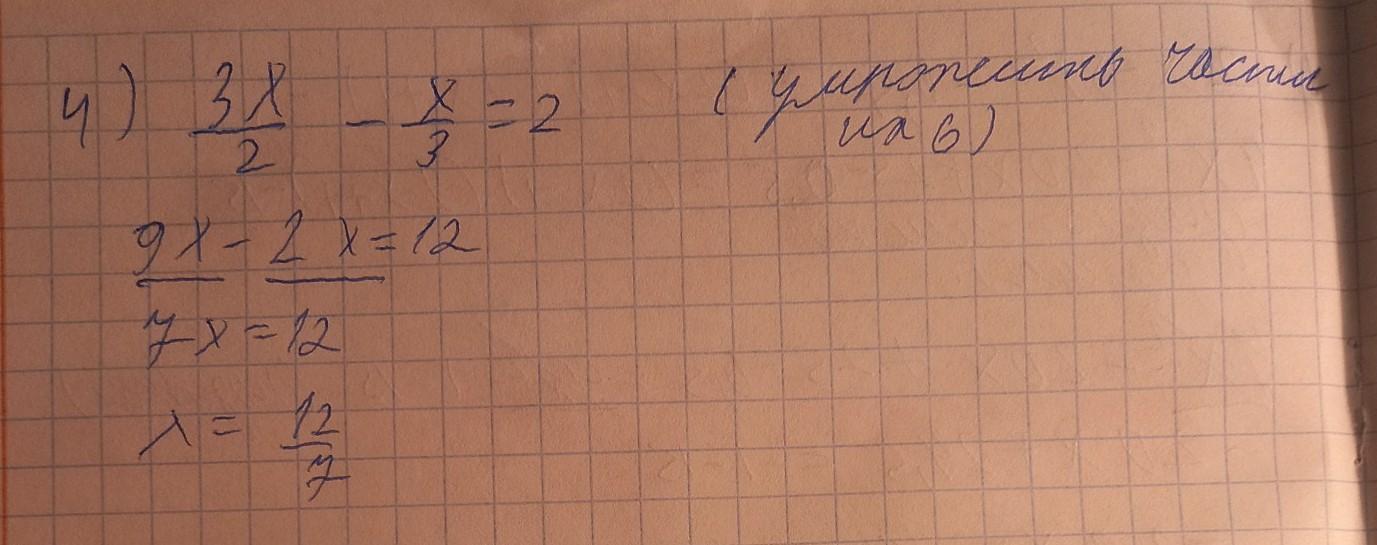 4) 3x/2 - x/3 = 2 (умножить части на 6)
9x - 2x = 12
7x = 12
x = 12/7